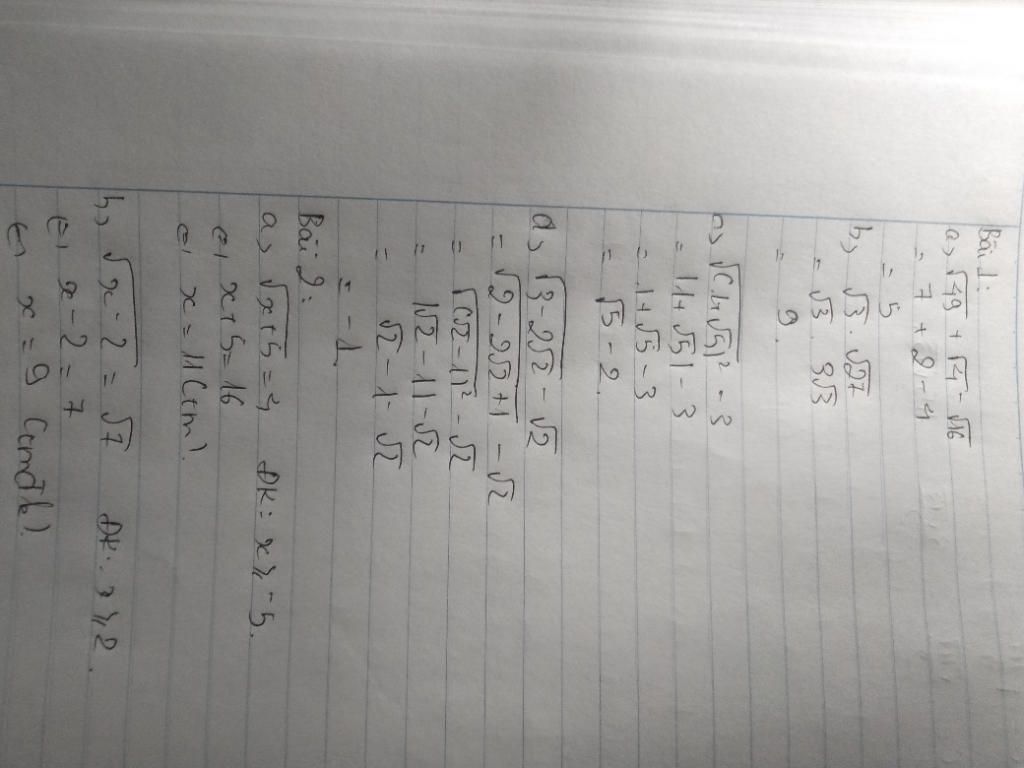 Bài 1:
a, √49 + √4 - √16
= 7 + 2 - 4
= 5
b, √3 . √27
= √3 . 3√3
= 9.
c, √(1+√5)² - 3
= |1+√5| - 3
= 1+√5 - 3
= √5 - 2.
d, √3-2√2 - √2
= √2-2√2+1 - √2
= √(√2-1)² - √2
= |√2 - 1| - √2
= √2 - 1 - √2
= -1.
Bài 2:
a, √x+5 = 4 ĐK: x ≥ -5.
<=> x+5 = 16
<=> x = 11 (tm).
b, √x-2 = √7 ĐK: x ≥ 2.
<=> x - 2 = 7
<=> x = 9 (tmđk).